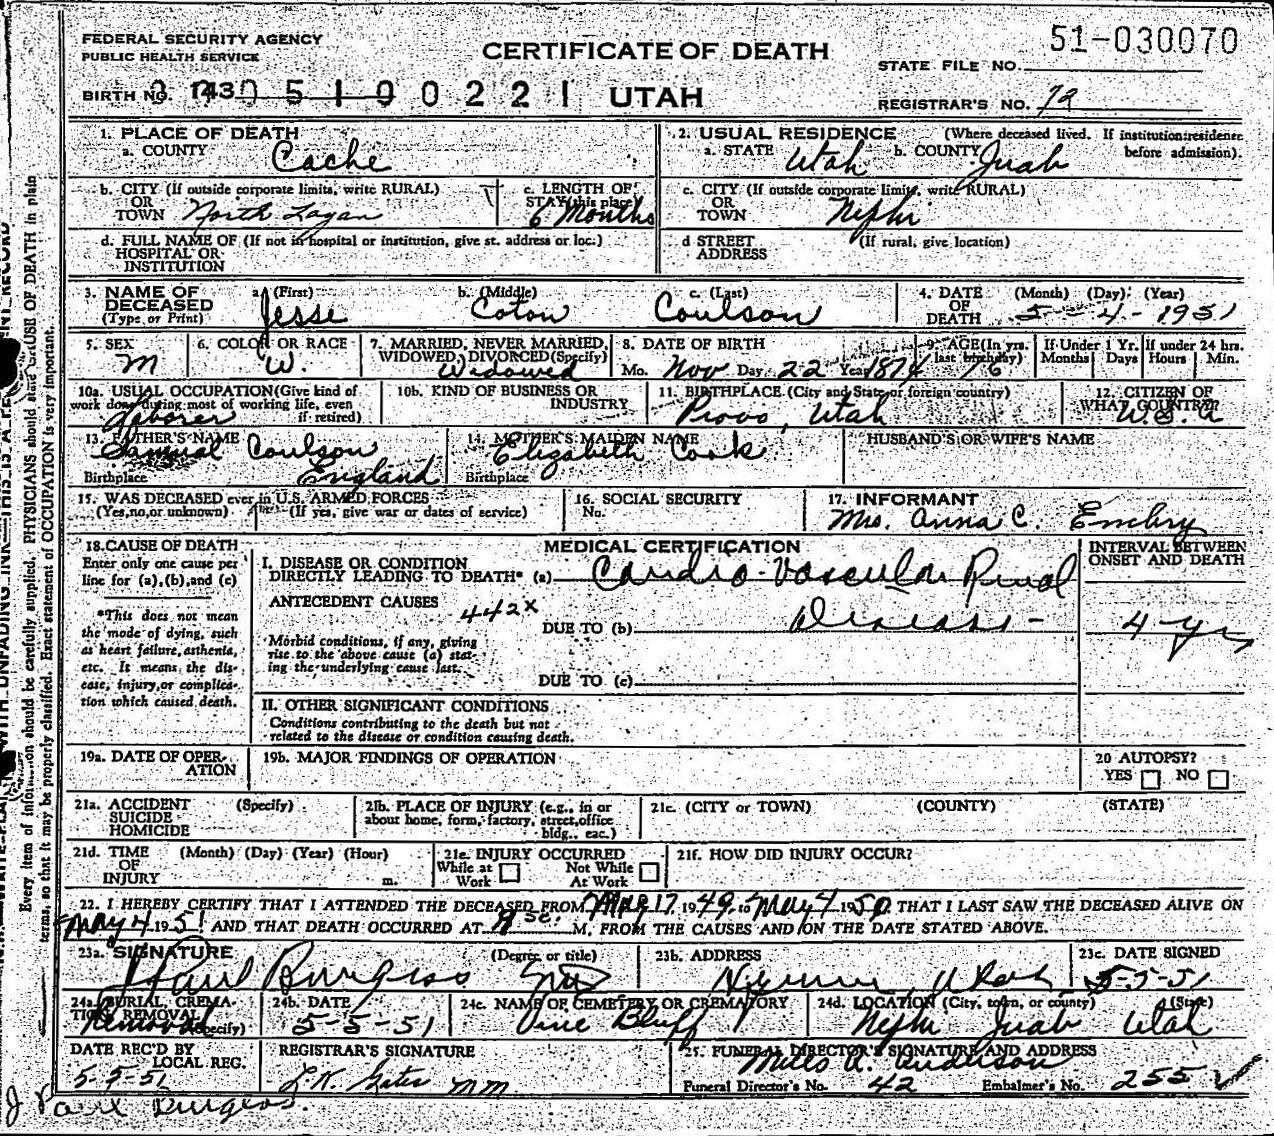 FEDERAL SECURITY AGENCY
PUBLIC HEALTH SERVICE
CERTIFICATE OF DEATH
51-030070
STATE FILE NO.
BIRTH NO. 143 0 5 1 0 0 2 2 1 UTAH
REGISTRAR'S NO. 72
1. PLACE OF DEATH
a. COUNTY Cache
2. USUAL RESIDENCE (Where deceased lived. If institution: residence before admission).
a. STATE Utah b. COUNTY Juab
b. CITY (If outside corporate limits, write RURAL) OR TOWN North Logan
c. LENGTH OF STAY (this place) 6 Months
c. CITY (If outside corporate limits, write RURAL) OR TOWN Nephi
d. FULL NAME OF (If not in hospital or institution, give st. address or loc.) HOSPITAL OR INSTITUTION
d STREET ADDRESS (If rural, give location)
3. NAME OF DECEASED (Type or Print) a. (First) Jesse b. (Middle) Coton c. (Last) Coulson
4. DATE OF DEATH (Month) (Day) (Year) 5-4-1951
5. SEX M
6. COLOR OR RACE W.
7. MARRIED, NEVER MARRIED, WIDOWED, DIVORCED (Specify) Widowed
8. DATE OF BIRTH Mo. Nov Day 22 Year 1874
9. AGE (In yrs. last birthday) 76
If Under 1 Yr. Months Days
If under 24 hrs. Hours Min.
10a. USUAL OCCUPATION (Give kind of work done during most of working life, even if retired) Laborer
10b. KIND OF BUSINESS OR INDUSTRY
11. BIRTHPLACE (City and State or foreign country) Provo, Utah
12. CITIZEN OF WHAT COUNTRY? U.S.A
13. FATHER'S NAME Samuel Coulson
Birthplace England
14. MOTHER'S MAIDEN NAME Elizabeth Cook
Birthplace
HUSBAND'S OR WIFE'S NAME
15. WAS DECEASED ever in U.S. ARMED FORCES
(Yes, no, or unknown) (If yes, give war or dates of service)
16. SOCIAL SECURITY No.
17. INFORMANT
Mrs. Anna C. Embry
18. CAUSE OF DEATH
Enter only one cause per line for (a), (b), and (c)
*This does not mean the mode of dying, such as heart failure, asthenia, etc. It means the disease, injury, or complication which caused death.
MEDICAL CERTIFICATION
I. DISEASE OR CONDITION DIRECTLY LEADING TO DEATH* (a) Cardio-Vascular Renal
ANTECEDENT CAUSES 442x
DUE TO (b) Disease -
Morbid conditions, if any, giving rise to the above cause (a) stating the underlying cause last.
DUE TO (c)
INTERVAL BETWEEN ONSET AND DEATH
4-yrs
II. OTHER SIGNIFICANT CONDITIONS
Conditions contributing to the death but not related to the disease or condition causing death.
19a. DATE OF OPERATION
19b. MAJOR FINDINGS OF OPERATION
20 AUTOPSY?
YES NO
21a. ACCIDENT SUICIDE HOMICIDE (Specify)
21b. PLACE OF INJURY (e.g., in or about home, form, factory, street, office bldg., eac.)
21c. (CITY or TOWN) (COUNTY) (STATE)
21d. TIME OF INJURY (Month) (Day) (Year) (Hour) m.
21e. INJURY OCCURRED
While at Work Not While At Work
21f. HOW DID INJURY OCCUR?
22. I HEREBY CERTIFY THAT I ATTENDED THE DECEASED FROM 17 1949 to May 4 19 THAT I LAST SAW THE DECEASED ALIVE ON
May 4 1951 AND THAT DEATH OCCURRED AT M. FROM THE CAUSES AND ON THE DATE STATED ABOVE.
23a. SIGNATURE Paul Burgess (Degree or title) MD
23b. ADDRESS Utah
23c. DATE SIGNED 5-5-51
24a. BURIAL, CREMATION, REMOVAL (Specify) Removal
24b. DATE 5-5-51
24c. NAME OF CEMETERY OR CREMATORY Vine Bluff
24d. LOCATION (City, town, or county) (State) Nephi Juab Utah
DATE REC'D BY LOCAL REG. 5-5-51
REGISTRAR'S SIGNATURE
25. FUNERAL DIRECTOR'S SIGNATURE AND ADDRESS
Miles A. Anderson
Funeral Director's No. 42 Embalmer's No. 255
J Paul Burgess.
Every item of information should be carefully supplied. PHYSICIANS should state CAUSE OF DEATH in plain
terms, so that it may be properly classified. Exact statement of OCCUPATION is very important.